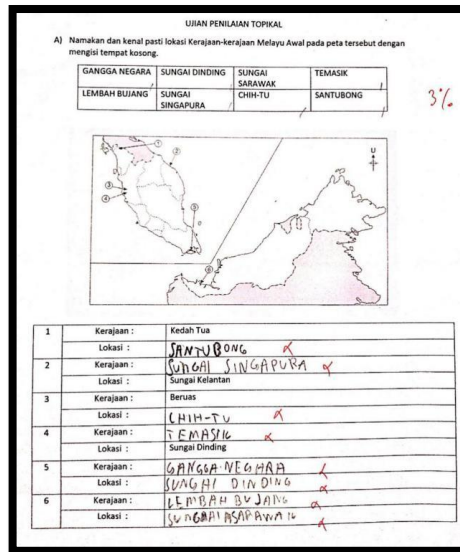 UJIAN PENILAIAN TOPIKAL
A) Namakan dan kenal pasti lokasi Kerajaan-kerajaan Melayu Awal pada peta tersebut dengan
mengisi tempat kosong.
GANGGA NEGARA SUNGAI DINDING SUNGAI SARAWAK TEMASIK
LEMBAH BUJANG SUNGAI SINGAPURA CHIH-TU SANTUBONG
3%
1
2
3
4
5
6
U
1 Kerajaan : Kedah Tua
Lokasi : SANTUBONG
2 Kerajaan : SUNGAI SINGAPURA
Lokasi : Sungai Kelantan
3 Kerajaan : Beruas
Lokasi : CHIH-TU
4 Kerajaan : TEMASIK
Lokasi : Sungai Dinding
5 Kerajaan : GANGGA NEGARA
Lokasi : SUNGAI DINDING
6 Kerajaan : LEMBAH BUJANG
Lokasi :